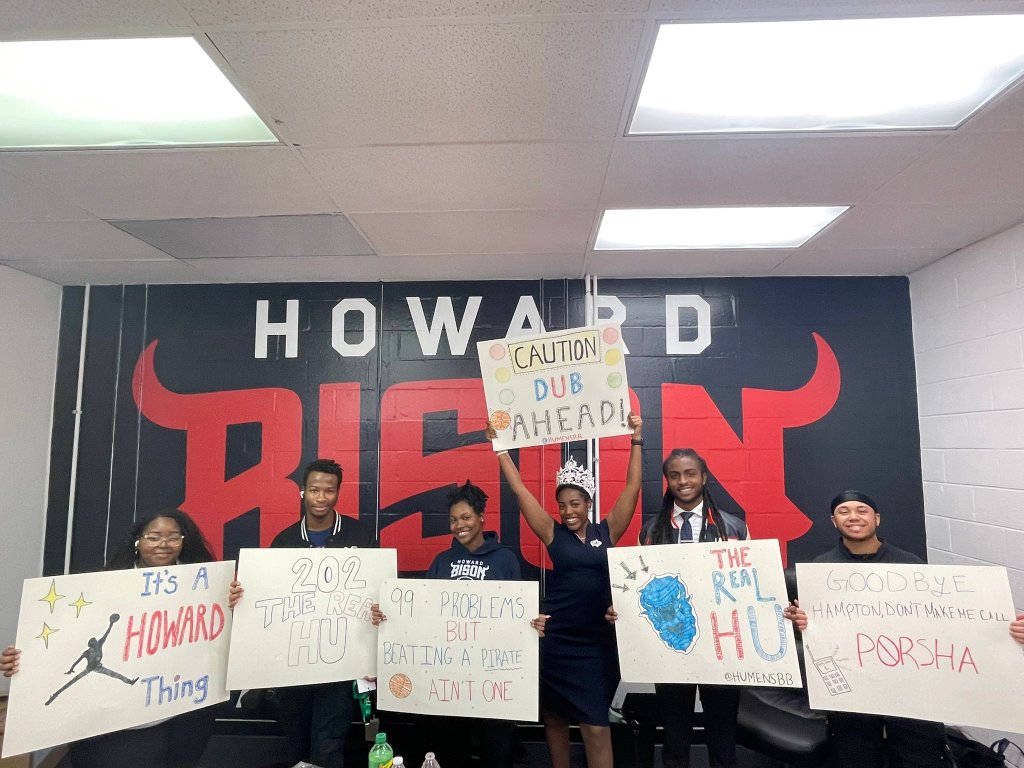 HOWARD
BISON
CAUTION
DUB
AHEAD!
@HUMENSBB
IT'S A
HOWARD
Thing
202
THE REAL
HU
BISON
99 PROBLEMS
BUT
BEATING A PIRATE
AIN'T ONE
THE
REAL
HU
@HUMENSBB
GOODBYE
HAMPTON, DON'T MAKE ME CALL
PORSHA